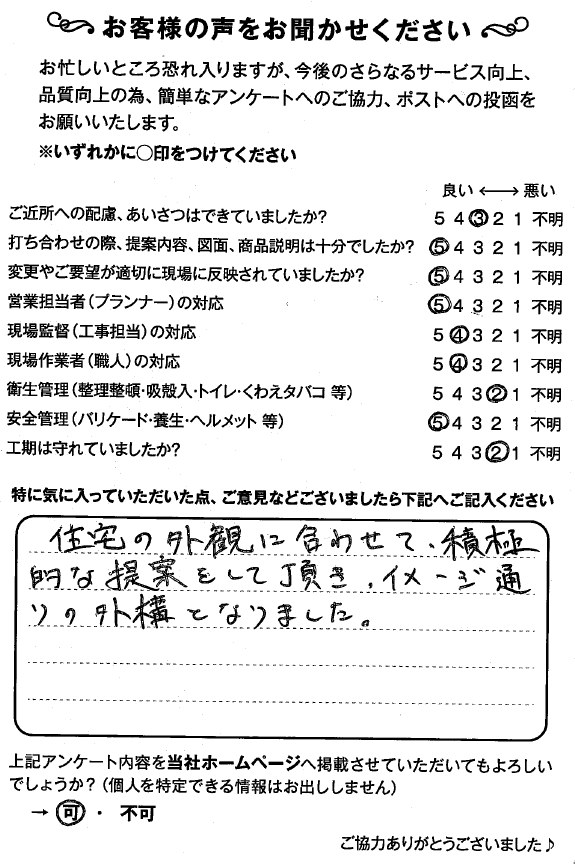 お客様の声をお聞かせください
お忙しいところ恐れ入りますが、今後のさらなるサービス向上、
品質向上の為、簡単なアンケートへのご協力、ポストへの投函を
お願いいたします。
※いずれかに〇印をつけてください
良い ⟷ 悪い
ご近所への配慮、あいさつはできていましたか? 5 4 ③ 2 1 不明
打ち合わせの際、提案内容、図面、商品説明は十分でしたか? ⑤ 4 3 2 1 不明
変更やご要望が適切に現場に反映されていましたか? ⑤ 4 3 2 1 不明
営業担当者(プランナー)の対応 ⑤ 4 3 2 1 不明
現場監督(工事担当)の対応 5 ④ 3 2 1 不明
現場作業者(職人)の対応 5 ④ 3 2 1 不明
衛生管理(整理整頓・吸殻入・トイレ・くわえタバコ 等) 5 4 3 ② 1 不明
安全管理(バリケード・養生・ヘルメット 等) ⑤ 4 3 2 1 不明
工期は守れていましたか? 5 4 3 ② 1 不明
特に気に入っていただいた点、ご意見などございましたら下記へご記入ください
住宅の外観に合わせて、積極
的な提案をして頂き、イメージ通
りの外構となりました。
上記アンケート内容を当社ホームページへ掲載させていただいてもよろしい
でしょうか?(個人を特定できる情報はお出ししません)
→ 可 ・ 不可
ご協力ありがとうございました♪